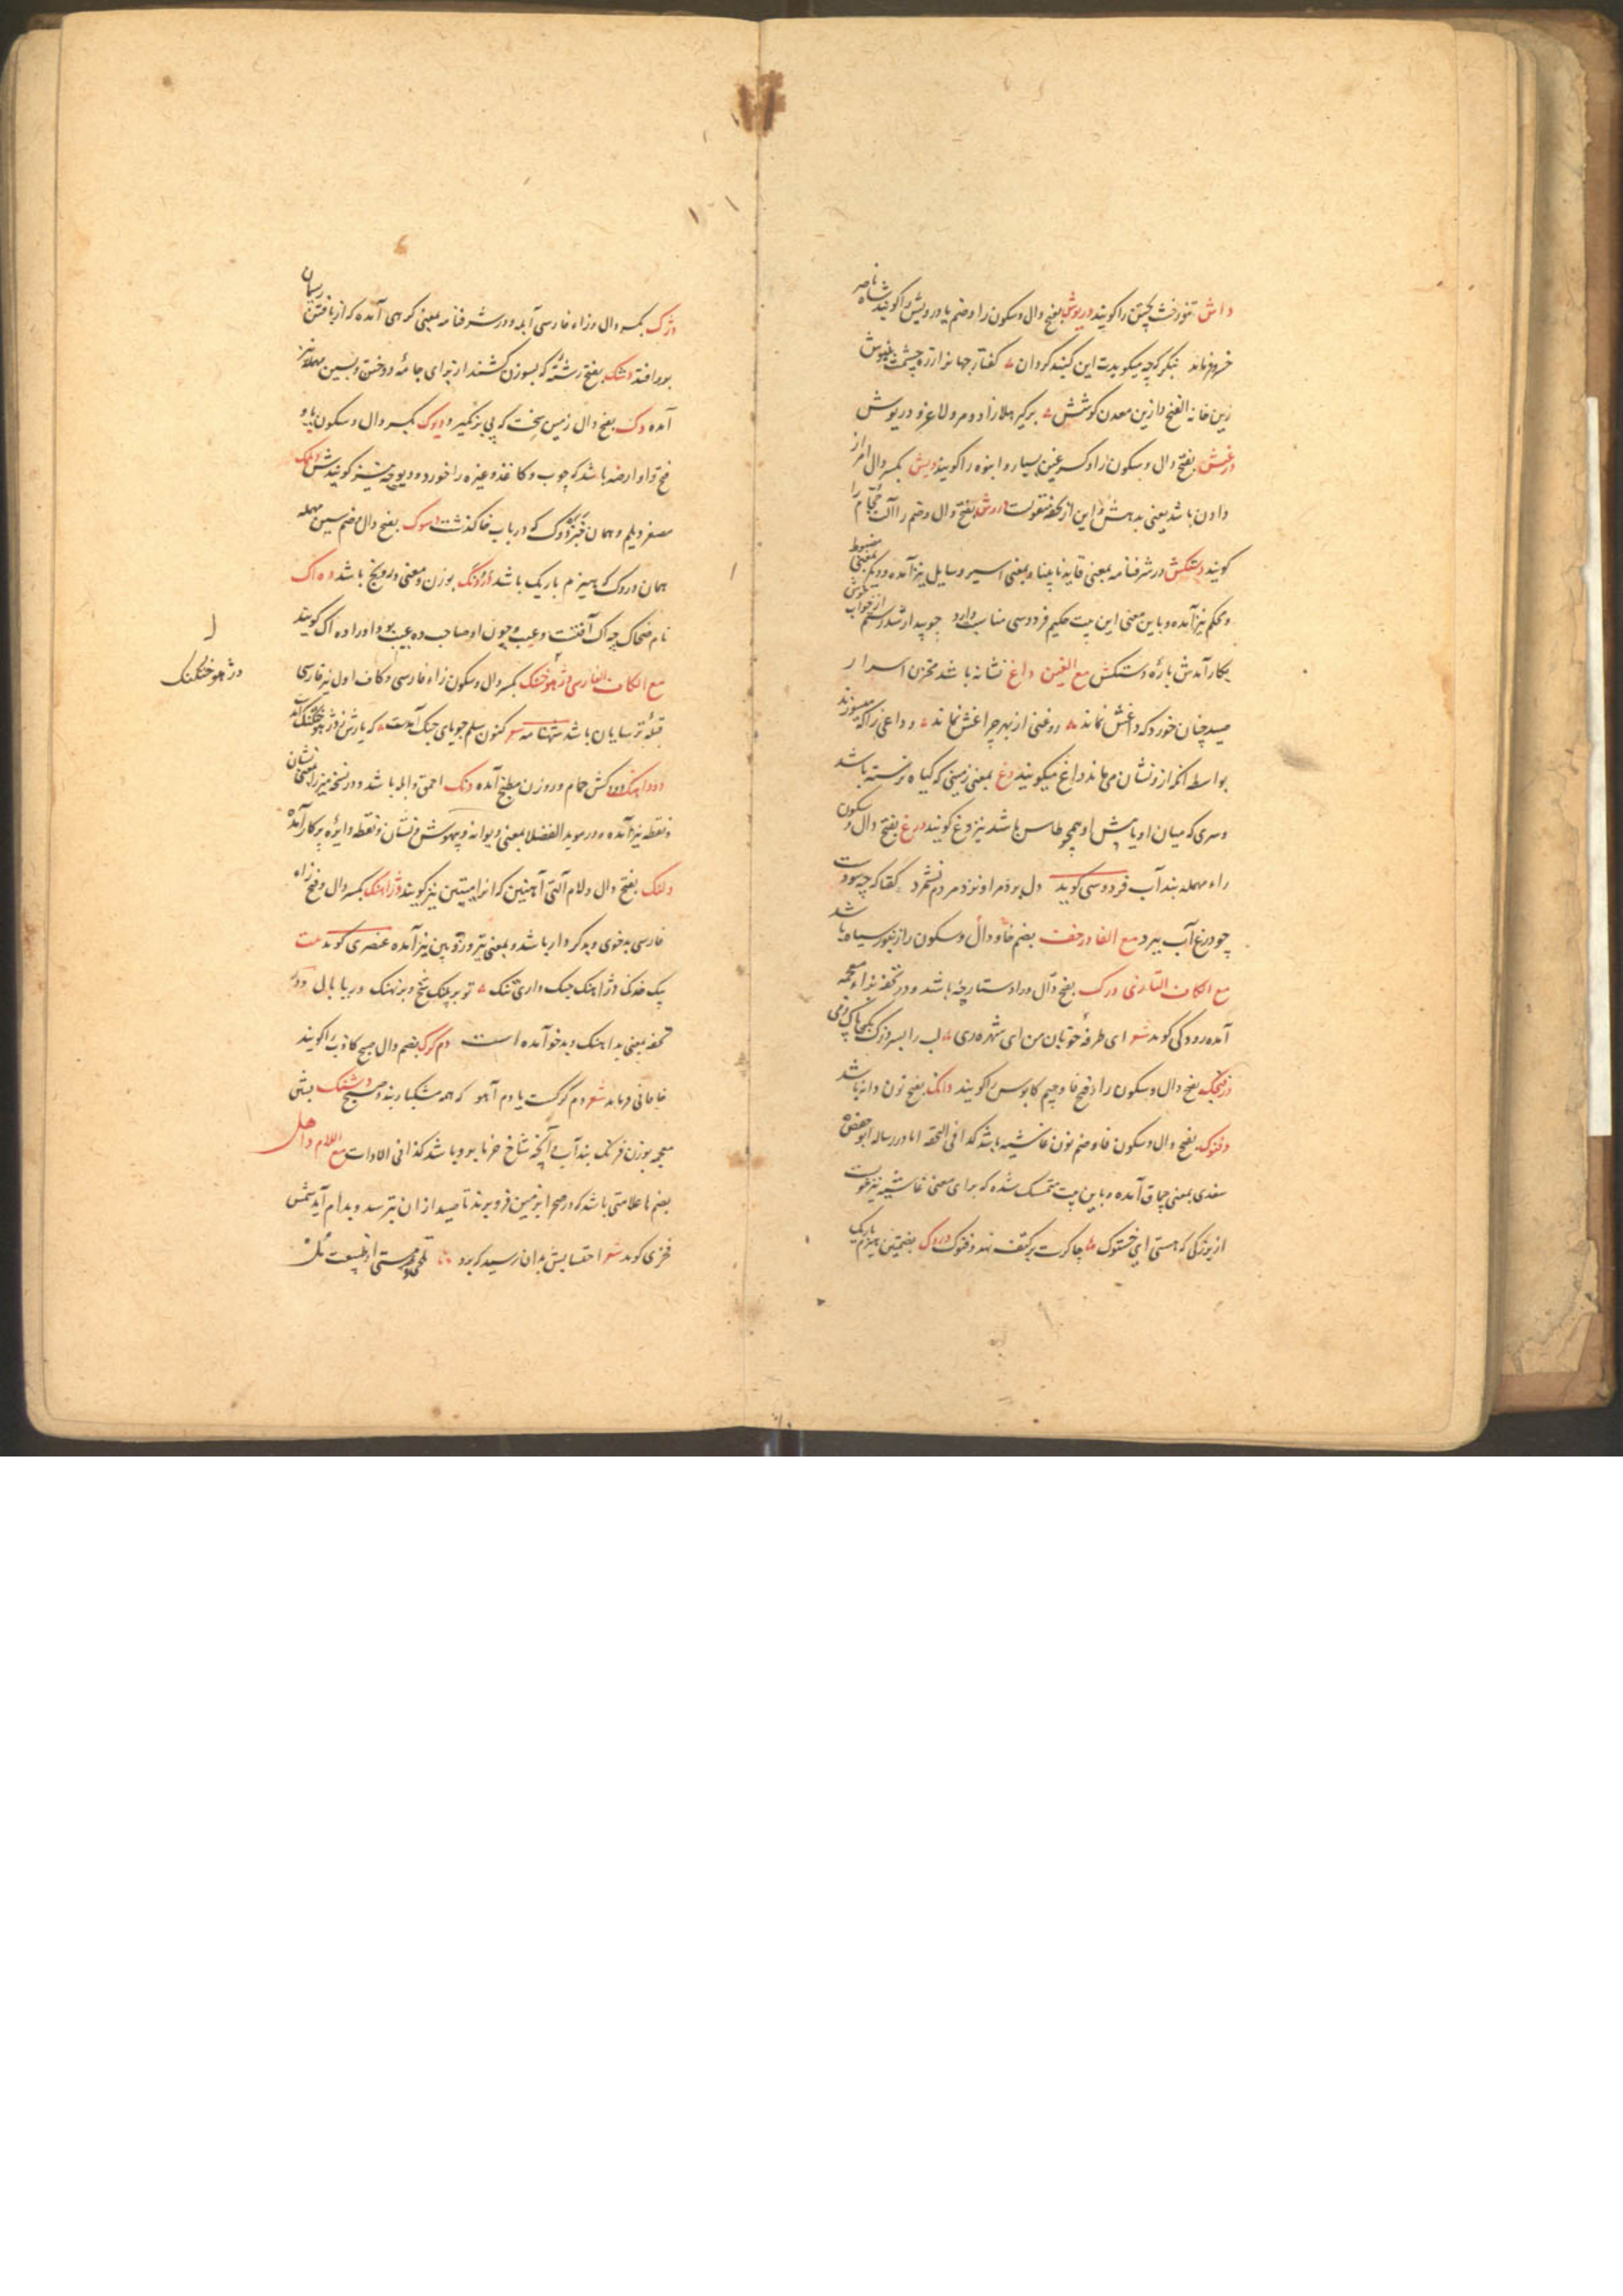 داش تنور خشت پختن را گویند دریوش بفتح دال و سکون را و ضم یا درویش را گویند شاه ناصر
خسرو فرماید بنگر که چه میگویدت این گنبد گردان گفتار جهان را زره چشمت بنیوش
زین خانه الفنج و ازین معدن کوشش برگیر هلا زاد و مرو لاغر و دریوش
درغش بفتح دال و سکون را و کسر غین بسیار و انبوه را گویند دیش بکسر دال امر از
دادن باشد یعنی بدهش و این از تحفه منقولست دروش بفتح دال و ضم را آلت حجام را
گویند دستکش در شرفنامه بمعنی قاید نابینا و بمعنی اسیر و سایل نیز آمده و دیگر بمعنی مضبوط
و محکم نیز آمده و باین معنی این بیت حکیم فردوسی مناسب دارد چو بیدار شد رستم از خواب خوش
بکار آمدش باره دستکش مع الغین داغ نشانه باشد مخزن اسرار
صید چنان خورد که داغش نماند روغنی از بهر چراغش نماند و داغی را که میسوزند
بواسطه آنکه ازو نشان می ماند داغ میگویند دغ بمعنی زمینی که گیاه نرسته باشد
و سری که میان او یا پیش او همچو طاس باشد نیز دغ گویند درغ بفتح دال و سکون
راء مهمله بند آب فردوسی گوید دل برد مرا و نزد مردم نشمرد گفتا که چه سودت
چو درغ آب ببرد مع الفا درخف بضم خا و دال و سکون را زنبور سیاه باشد
مع الکاف التازی درک بفتح دال و را دستارچه باشد و در تحفه بزاء معجمه
آمده رودکی گوید شعر ای طرفه خوبان من ای شهره ری لب را بسر درک بکن پاک زمی
درفنجک بفتح دال و سکون را و فتح فا و جیم کابوس را گویند دانک بفتح نون دانه باشد
دفنوک بفتح دال و سکون فا و ضم نون غاشیه باشد کذا فی التحفه اما در رساله ابوحفص
سغدی بمعنی چماق آمده و باین بیت متمسک شده که برای معنی غاشیه نیز خوبست
از بزرگی که هستی ای خشنوک چاکرت بر کتف نهد دفنوک دروک بضمتین هیزم باریک
دژک بکسر دال و زاء فارسی آبله و در شرفنامه بمعنی گرهی آمده که از بافتن ریسمان
برو افتد دشک بفتح رشته که بسوزن کشند از برای جامه دوختن و بسین مهمله نیز
آمده دک بفتح دال زمین سخت که پی برنگیرد دیوک بکسر دال و سکون یا و
فتح واو ارضه باشد که چوب و کاغذ و غیره را خورد و دیوچه نیز گویندش دیلمک
مصغر دیلم و همان خبزدوک که در باب خا گذشت دسوک بفتح دال و ضم سین مهمله
همان دروک که هیزم باریک باشد دژونگ بوزن و معنی درونج باشد ده آک
نام ضحاک چه آک آفتست و عیب و چون او صاحب ده عیب بود او را ده آک گویند
مع الکاف الفارسی دژهوختگنگ بکسر دال و سکون زاء فارسی و کاف اول نیز فارسی
قبله ترسایان باشد شهنامه شعر کنون سلم جویای جنگ آمدست که یارش ز دژهوختگنگ آمدست
دودآهنگ دودکش حمام و روزن مطبخ آمده دنگ احمق و ابله باشد و در نسخه میرزا بمعنی نشان
و نقطه نیز آمده و در موید الفضلا بمعنی دیوانه و بیهوش و نشان و نقطه دایره پرگار آمده
دلنگ بفتح دال و لام آلتی آهنین که آنرا میتین نیز گویند دژآهنگ بکسر دال و فتح زاء
فارسی بدخوی و بدکردار باشد و بمعنی تیر و زوبین نیز آمده عنصری گوید بیت
بیک خدنگ دژآهنگ جنگ داری تنگ تو بر پلنگ شخ و بر نهنگ دریا بال و در
تحفه بمعنی بدآهنگ و بدخو آمده است دم گرگ بضم دال صبح کاذب را گویند
خاقانی فرماید شعر دم گرگست یا دم آهو که همه مشکبار بندد صبح دشنگ بشین
معجمه بوزن فرنگ بند آب و آنچه شاخ خرما برو باشد کذا فی الادات مع اللام داحل
بضم ها علامتی باشد که در صحرا بزمین فرو برند تا صید از آن بترسد و بدام آید شمس
فخری گوید شعر احتسابش بدان رسید که برد
ل
دژهوختگنگ